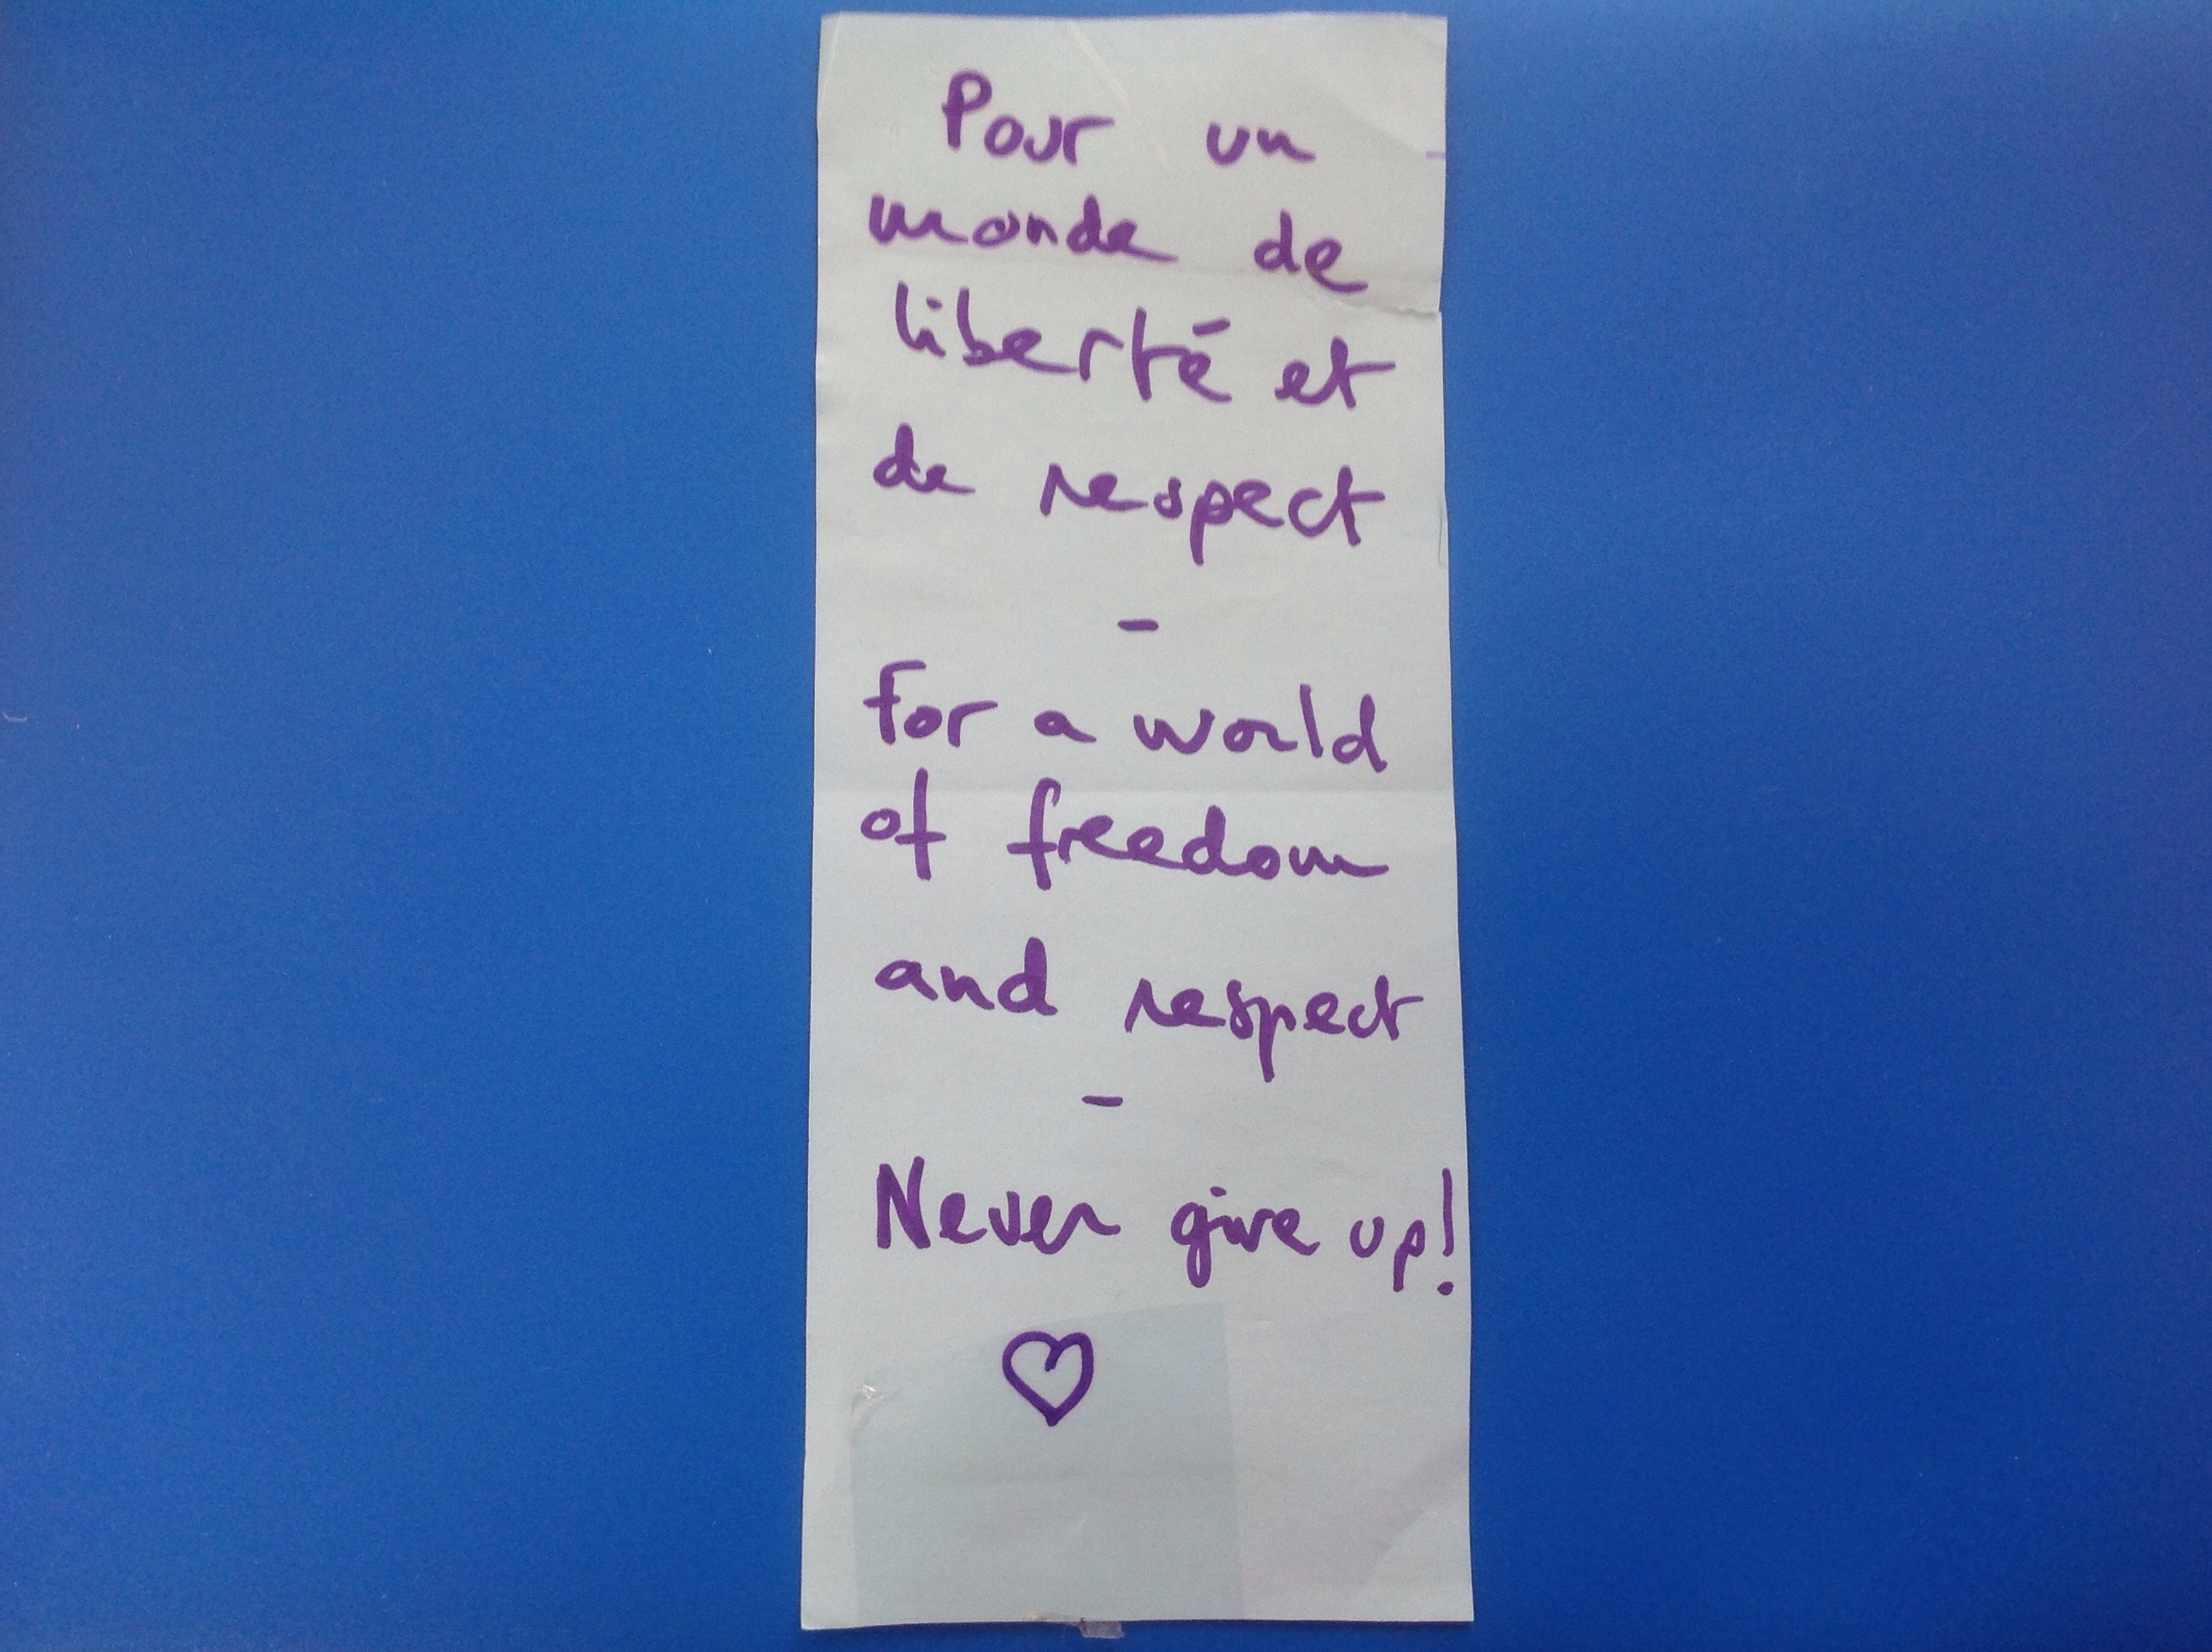 Pour un
monde de
liberté et
de respect
-
For a world
of freedom
and respect
-
Never give up!
♡